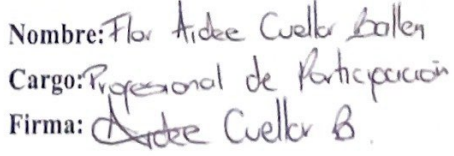 Nombre: Flor Aidee Cuellar Ballen
Cargo: Profesional de Participación
Firma: Aidee Cuellar B.